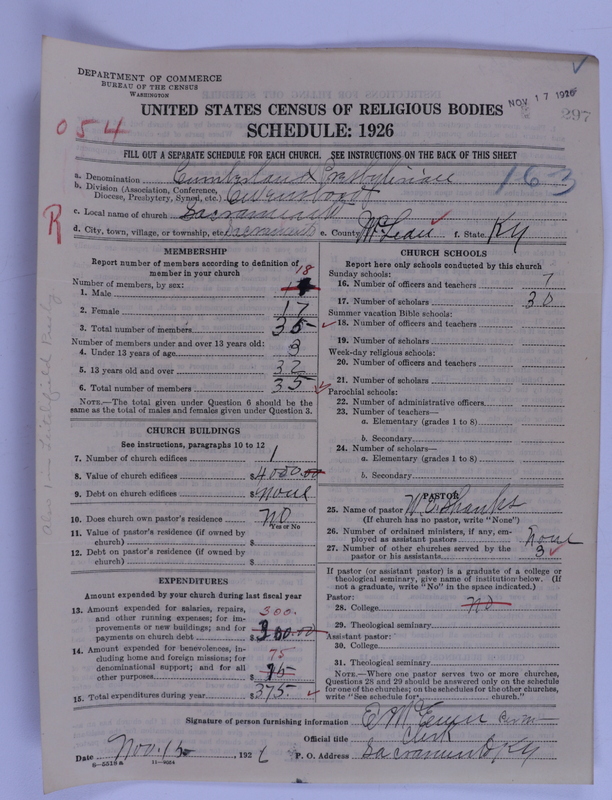 DEPARTMENT OF COMMERCE
BUREAU OF THE CENSUS
WASHINGTON
NOV 17 1926
297
UNITED STATES CENSUS OF RELIGIOUS BODIES
SCHEDULE: 1926
054
FILL OUT A SEPARATE SCHEDULE FOR EACH CHURCH. SEE INSTRUCTIONS ON THE BACK OF THIS SHEET
a. Denomination Cumberland Presbyterian
163
b. Division (Association, Conference,
Diocese, Presbytery, Synod, etc.) Owensboro
c. Local name of church Sacramento
R
d. City, town, village, or township, etc. Sacramento e. County McLean f. State Ky
MEMBERSHIP
Report number of members according to definition of
member in your church
Number of members, by sex: 18
1. Male
2. Female 17
3. Total number of members 35
Number of members under and over 13 years old:
4. Under 13 years of age 3
5. 13 years old and over 32
6. Total number of members 35
NOTE.—The total given under Question 6 should be the
same as the total of males and females given under Question 3.
CHURCH BUILDINGS
See instructions, paragraphs 10 to 12
7. Number of church edifices 1
8. Value of church edifices $ 4000.00
9. Debt on church edifices $ none
10. Does church own pastor's residence NO
Yes or No
11. Value of pastor's residence (if owned by
church) $
12. Debt on pastor's residence (if owned by
church) $
EXPENDITURES
Amount expended by your church during last fiscal year
13. Amount expended for salaries, repairs,
and other running expenses; for im-
provements or new buildings; and for
payments on church debt $ 300.00
300.
14. Amount expended for benevolences, in-
cluding home and foreign missions; for
denominational support; and for all
other purposes $ 75
75
15. Total expenditures during year $ 375
CHURCH SCHOOLS
Report here only schools conducted by this church
Sunday schools:
16. Number of officers and teachers 7
17. Number of scholars 30
Summer vacation Bible schools:
18. Number of officers and teachers
19. Number of scholars
Week-day religious schools:
20. Number of officers and teachers
21. Number of scholars
Parochial schools:
22. Number of administrative officers
23. Number of teachers—
a. Elementary (grades 1 to 8)
b. Secondary
24. Number of scholars—
a. Elementary (grades 1 to 8)
b. Secondary
PASTOR
25. Name of pastor W. O. Shanks
(If church has no pastor, write "None")
26. Number of ordained ministers, if any, em-
ployed as assistant pastors None
27. Number of other churches served by the
pastor or his assistants 3
If pastor (or assistant pastor) is a graduate of a college or
theological seminary, give name of institution below. (If
not a graduate, write "No" in the space indicated.)
Pastor:
28. College no
29. Theological seminary
Assistant pastor:
30. College
31. Theological seminary
NOTE.—Where one pastor serves two or more churches,
Questions 28 and 29 should be answered only on the schedule
for one of the churches; on the schedules for the other churches,
write "See schedule for church."
Signature of person furnishing information
Official title Clerk
Date Nov. 15, 1926 P. O. Address Sacramento Ky
8-5516a 11-9064